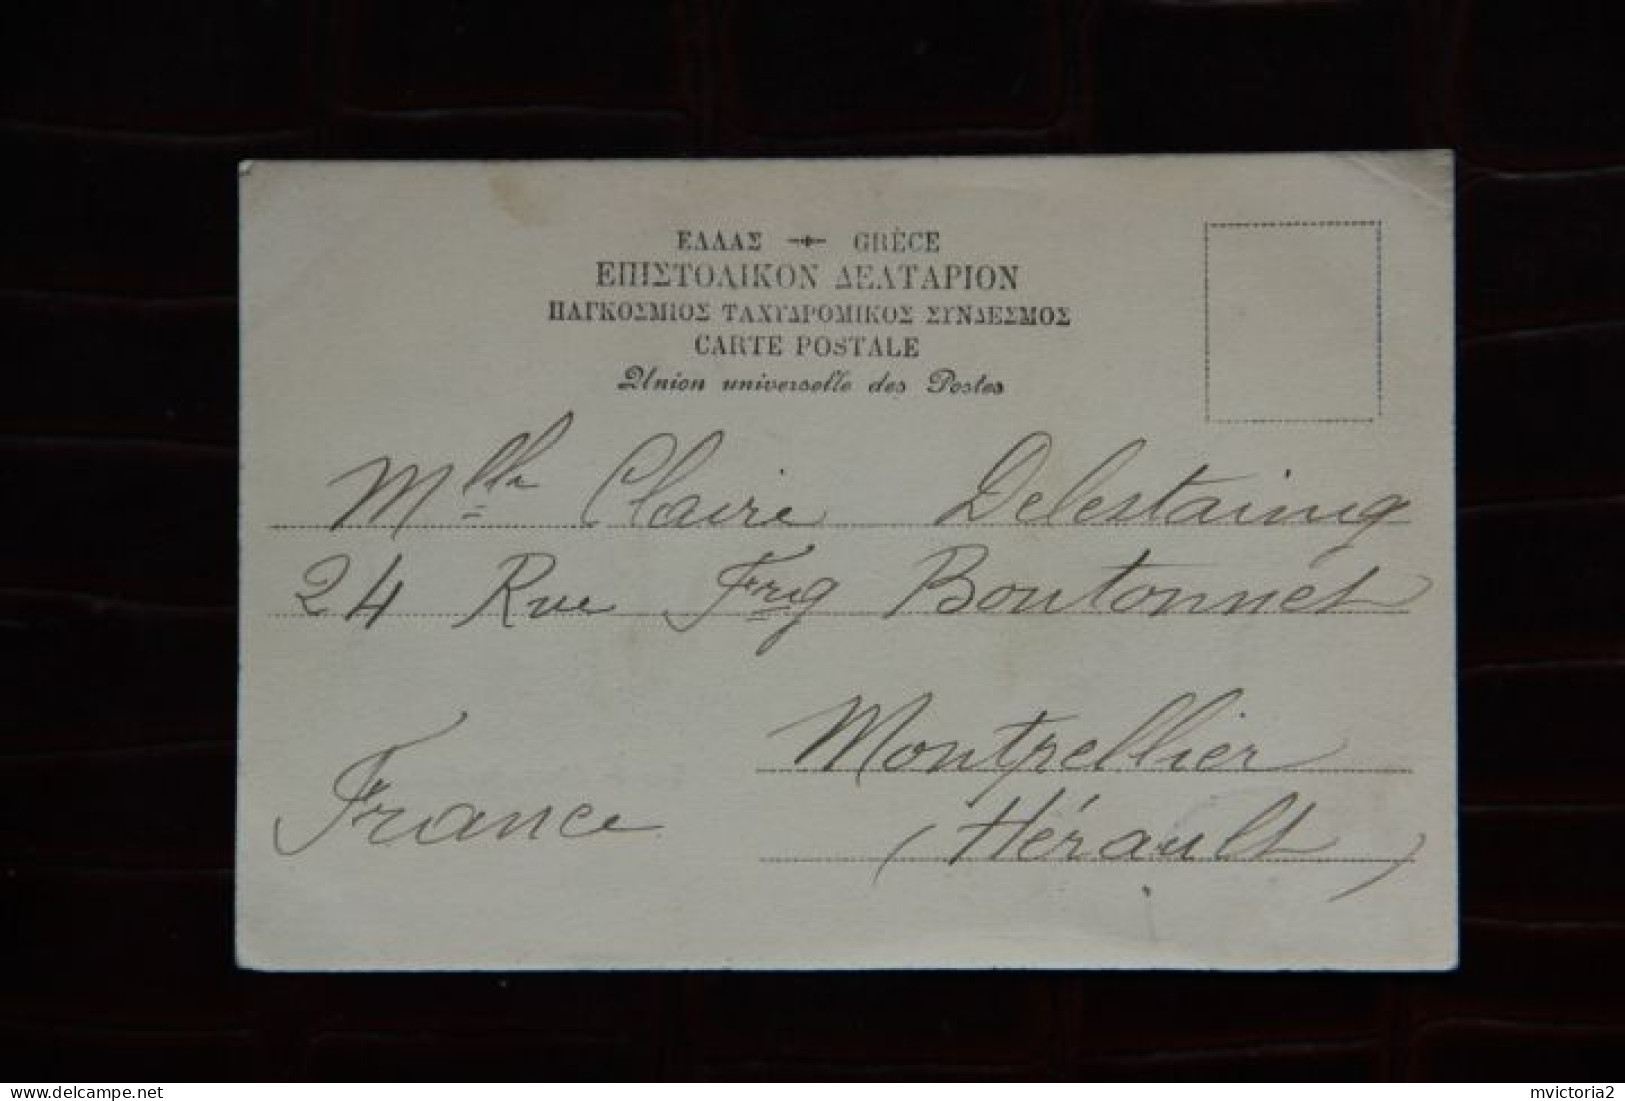 ΕΛΛΑΣ GRÈCE
ΕΠΙΣΤΟΛΙΚΟΝ ΔΕΛΤΑΡΙΟΝ
ΠΑΓΚΟΣΜΙΟΣ ΤΑΧΥΔΡΟΜΙΚΟΣ ΣΥΝΔΕΣΜΟΣ
CARTE POSTALE
Union universelle des Postes
Mlle Claire Delestaing
24 Rue Fbg Boutonnet
Montpellier
France
(Hérault)
delcampe.net
mvictoria2